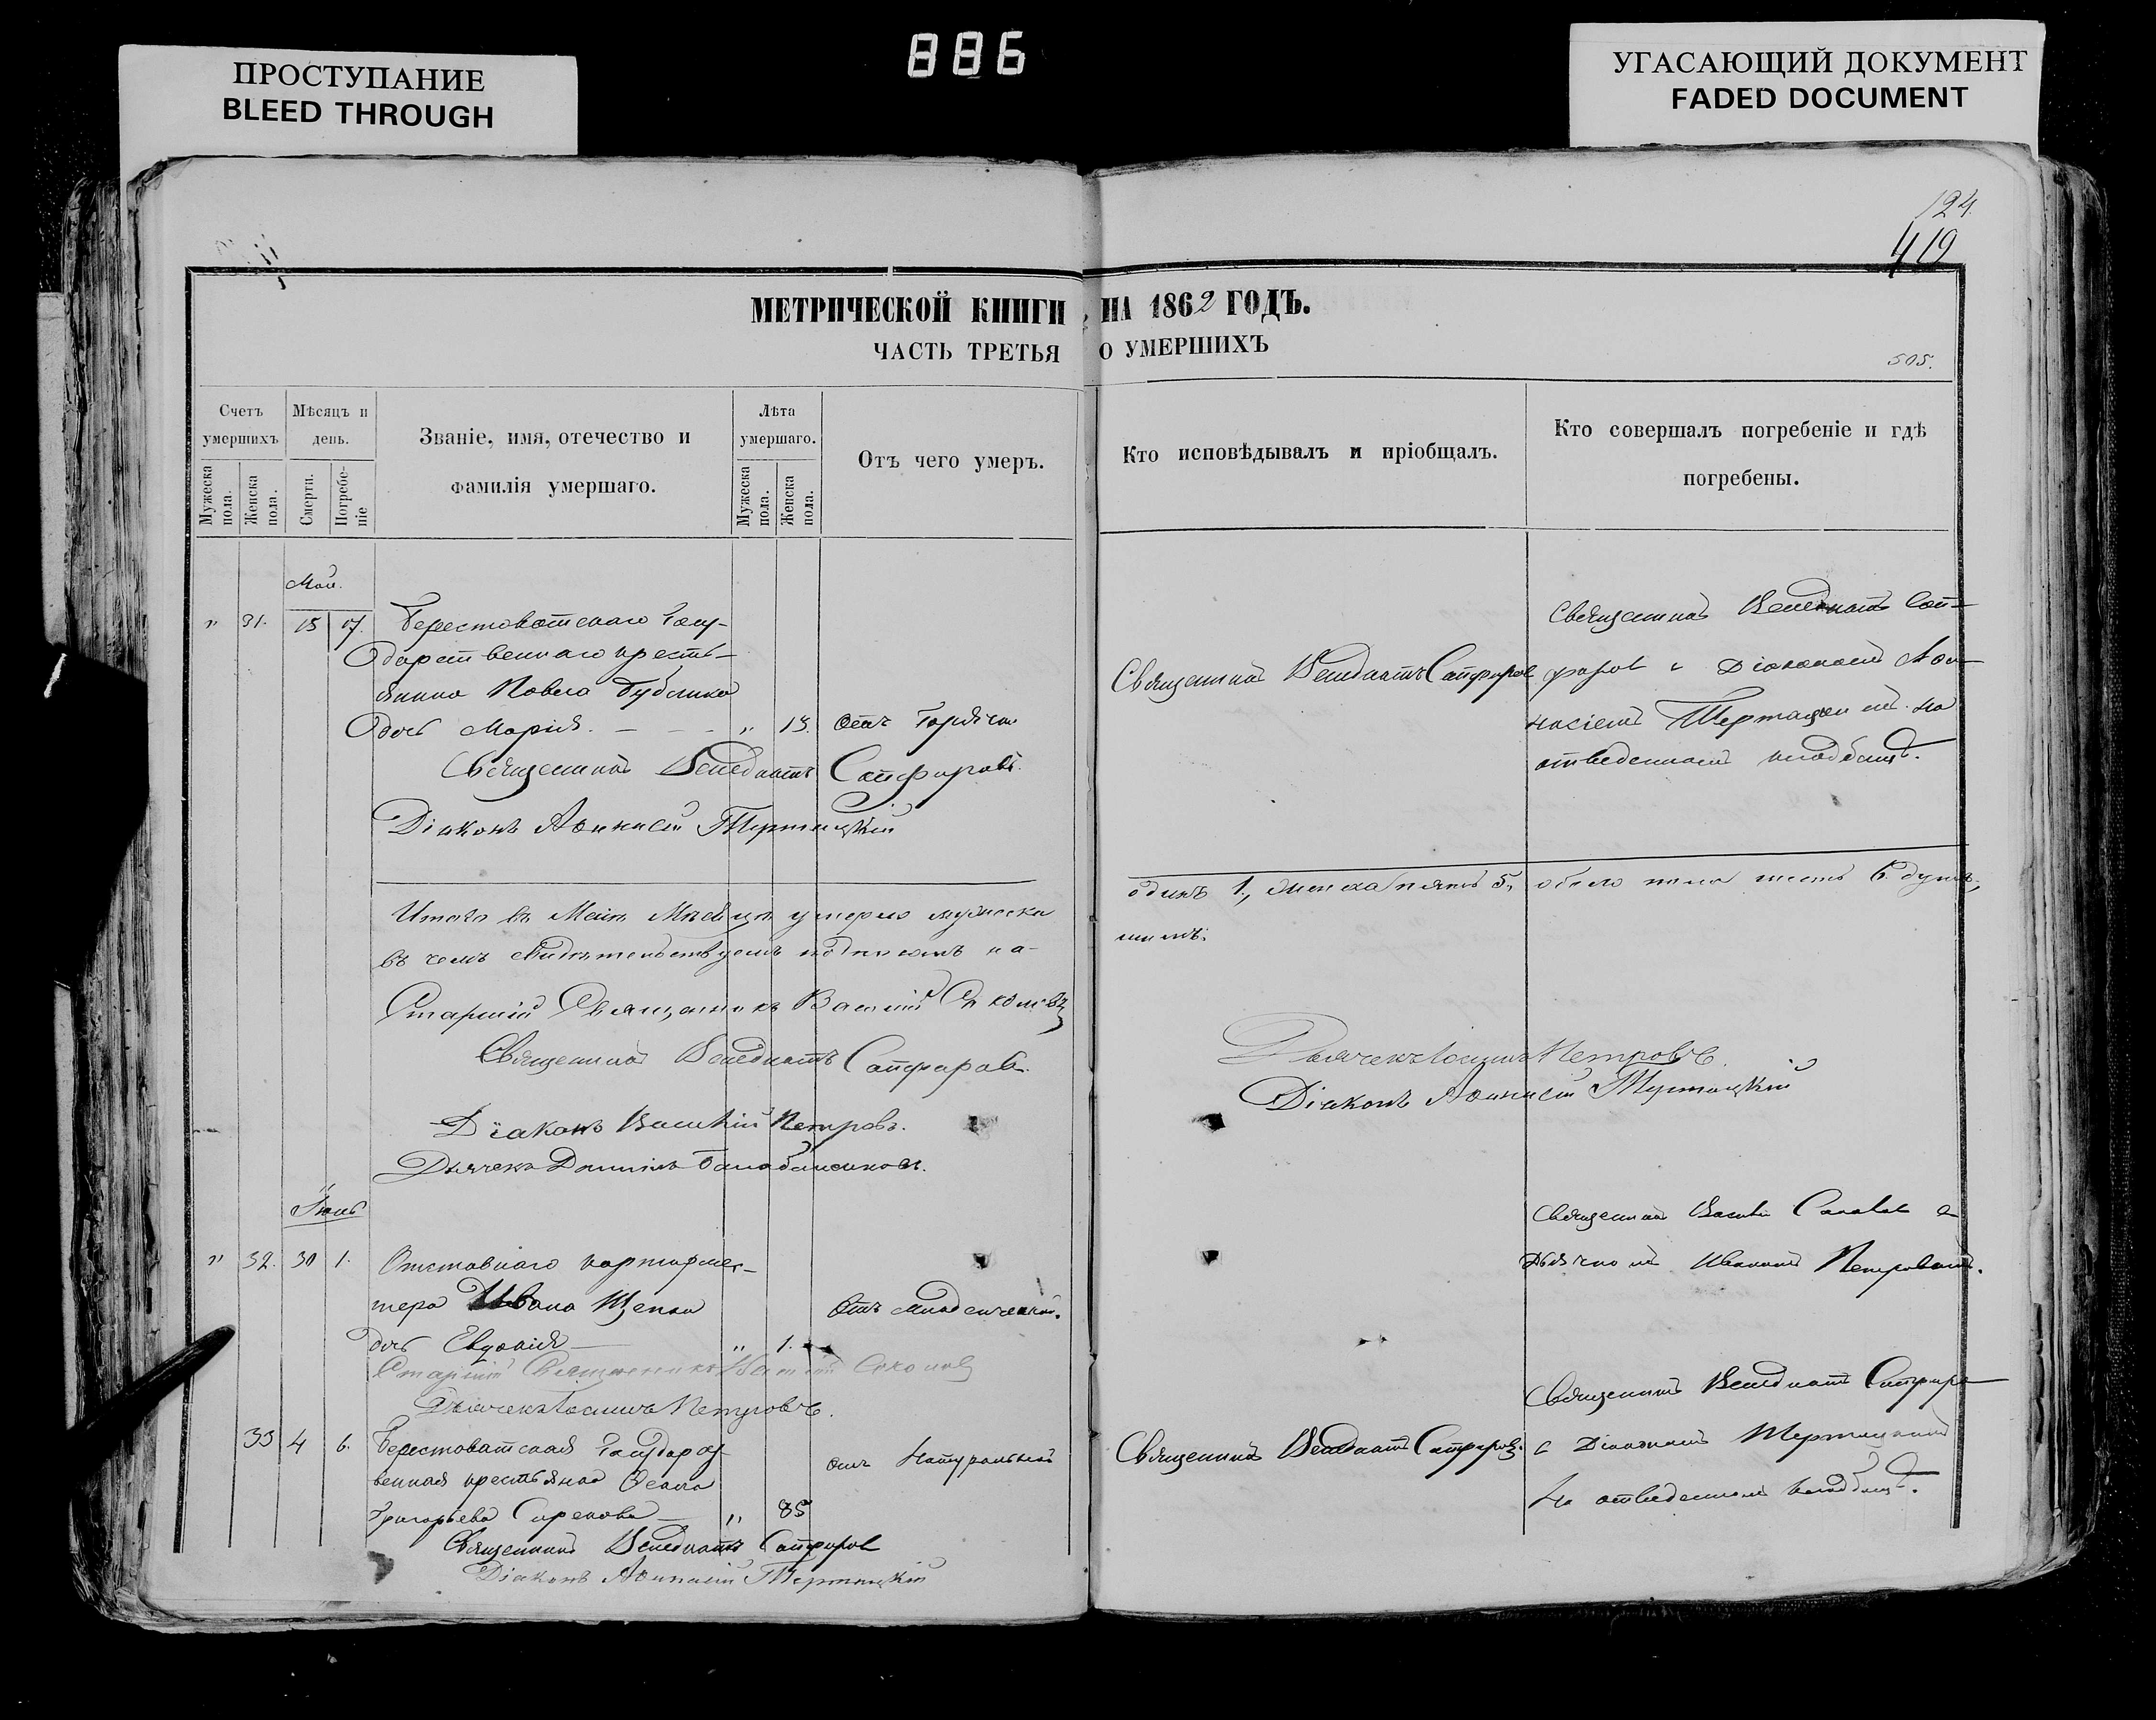 ПРОСТУПАНИЕ
BLEED THROUGH
886
УГАСАЮЩИЙ ДОКУМЕНТ
FADED DOCUMENT
124.
419
МЕТРИЧЕСКОЙ КНИГИ НА 1862 ГОДЪ.
ЧАСТЬ ТРЕТЬЯ О УМЕРШИХЪ
505.
Счетъ умершихъ
Мужеска пола.
Женска пола.
Мѣсяцъ и день.
Смерти.
Погребеніе
Званіе, имя, отечество и
фамилія умершаго.
Лѣта умершаго.
Мужеска пола.
Женска пола.
Отъ чего умеръ.
Кто исповѣдывалъ и пріобщалъ.
Кто совершалъ погребеніе и гдѣ
погребены.
Май.
" 31. 15 17. Берестоватскаго Госу-
дарственнаго кресть-
янина Павла
дочь Марія. - - - " 13. отъ Горячки
Священникъ Венедиктъ Сапфировъ.
Діаконъ Аѳанасій Тертицкій
Священникъ Венедиктъ Сапфировъ
Священникъ Венедиктъ Сап-
фировъ с Діакономъ Аѳа-
насіемъ на
отведенномъ кладбищѣ.
Итого въ Маѣ Мѣсяцѣ умерло мужеска
одинъ 1, женска пять 5, обоего пола шесть 6 душъ,
въ чемъ свидѣтельствуемъ подписомъ на-
шимъ:
Старшій Священникъ Василій Соколовъ
Священникъ Венедиктъ Сапфировъ.
Діаконъ Василій Петровъ.
Дьячекъ
Дьячекъ Петровъ.
Діаконъ Аѳанасій Тертицкій
Іюнь
" 32. 30 1. Отставнаго квартирмес-
тера Ивана
дочь Евдокія — " 1.
Отъ младенческой.
Старшій Священникъ Василій Соколовъ
Дьячекъ Петровъ.
Священникъ Василій Соколовъ с
Дьячкомъ Иваномъ Петровымъ.
33 4 6. Берестоватская Государст-
венная крестьянка
Григорьева — " 85
отъ Натуральной
Священникъ Венедиктъ Сапфировъ
Діаконъ Аѳанасій Тертицкій
Священникъ Венедиктъ Сапфировъ.
Священникъ Венедиктъ Сапфиро
с Діакономъ Тертицкимъ
На отведенномъ кладбищѣ.